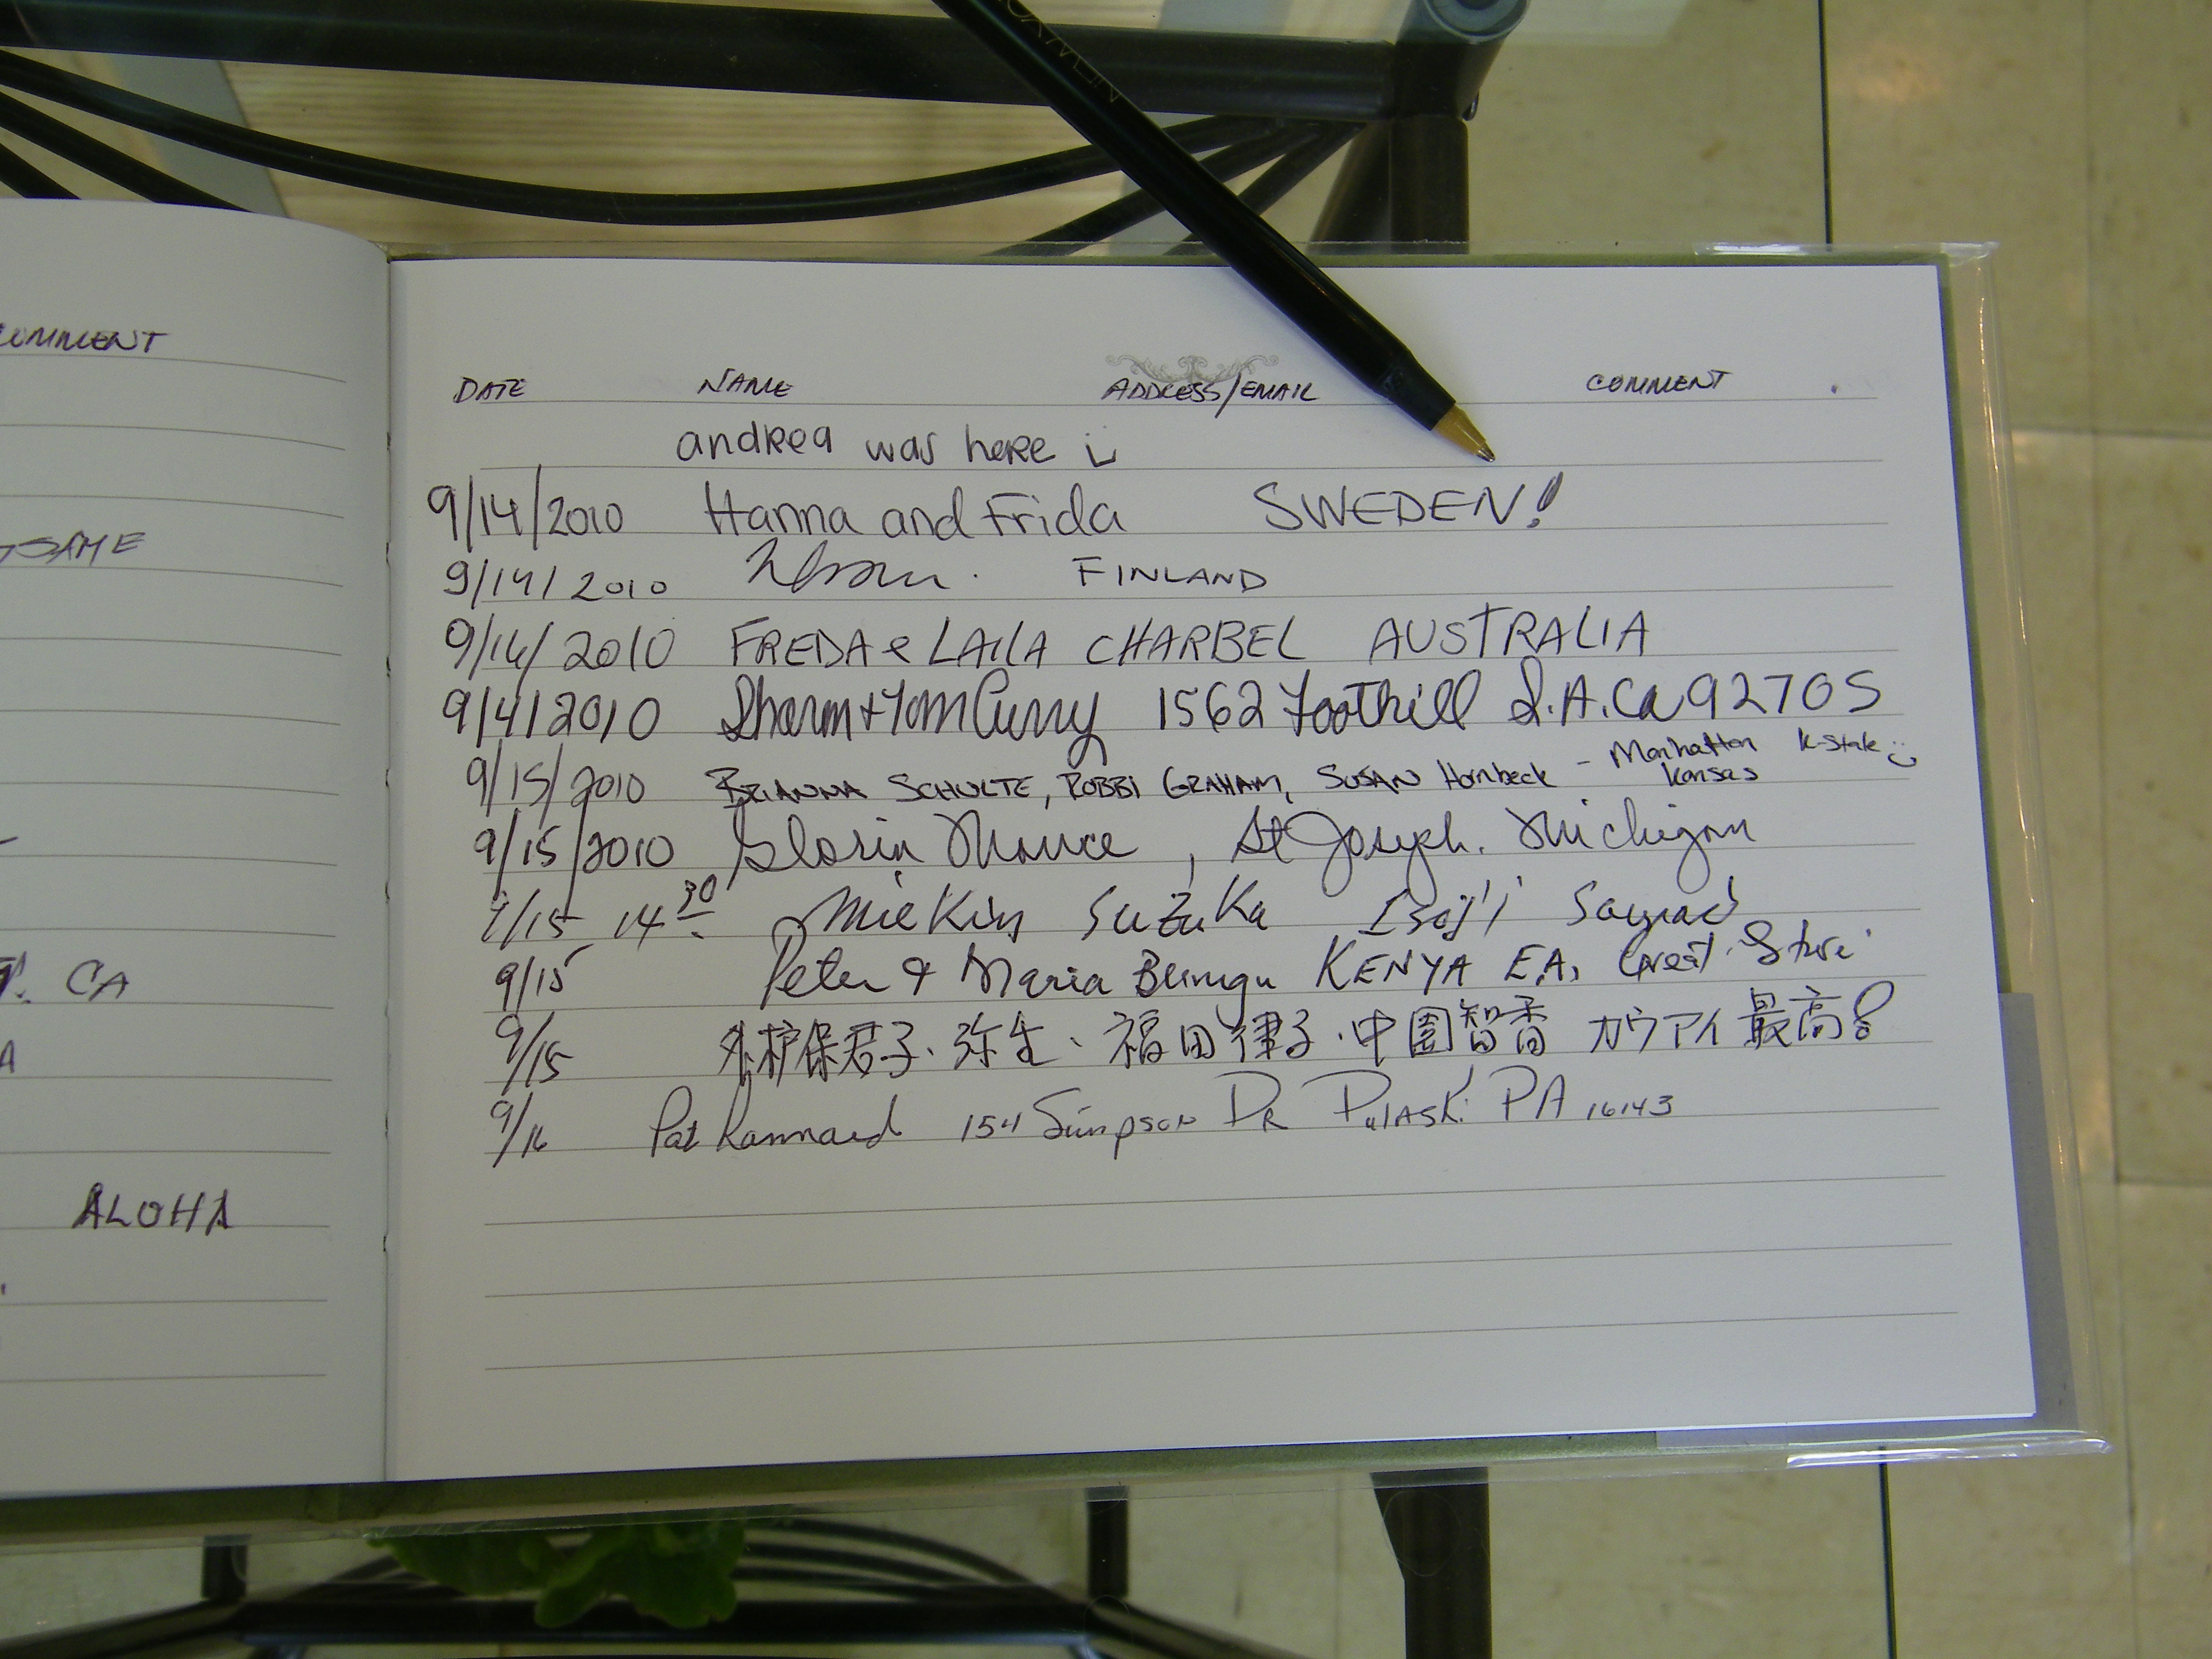 COMMENT
SAME
CA
A
ALOHA
DATE NAME ADDRESS/EMAIL COMMENT
andrea was here
9/14/2010 Hanna and Frida SWEDEN!
9/14/2010 FINLAND
9/14/2010 FREDA & LAILA CHARBEL AUSTRALIA
9/14/2010 Sharon + Tom Curry 1562 Foothill S.A. Ca 92705
9/15/2010 BRIANNA SCHULTE, ROBBI GRAHAM, SUSAN Hornbeck - Manhattan Kansas K-State
9/15/2010 Gloria , St Joseph. Michigan
9/15 14 30 Suzuka
9/15 Peter & Maria KENYA E.A, Great Store
9/15 保君子・弥生、福田律子・中園智香 カウアイ最高!
9/16 Pat 154 Simpson DR PulASKi PA 16143